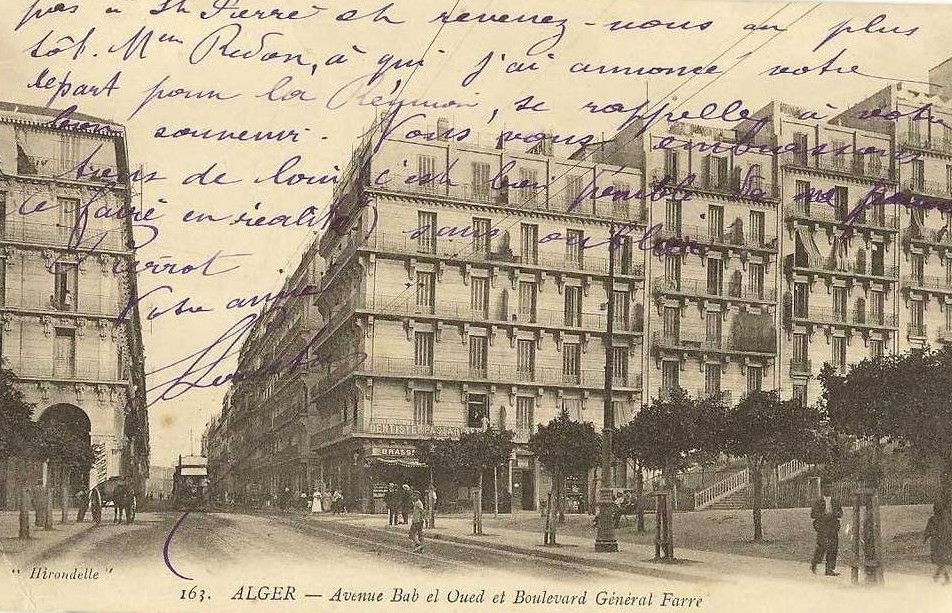 pas à St Pierre et revenez-nous au plus
tôt. Mme Redon, à qui j'ai annoncé votre
départ pour la Réunion, se rappelle à votre
bon souvenir. Nous vous embrassons
de loin, c'est bien
le faire en réalité) sans oublier
Pierrot
Votre amie
DENTISTE
BRASS
"Hirondelle"
163. ALGER — Avenue Bab el Oued et Boulevard Général Farre